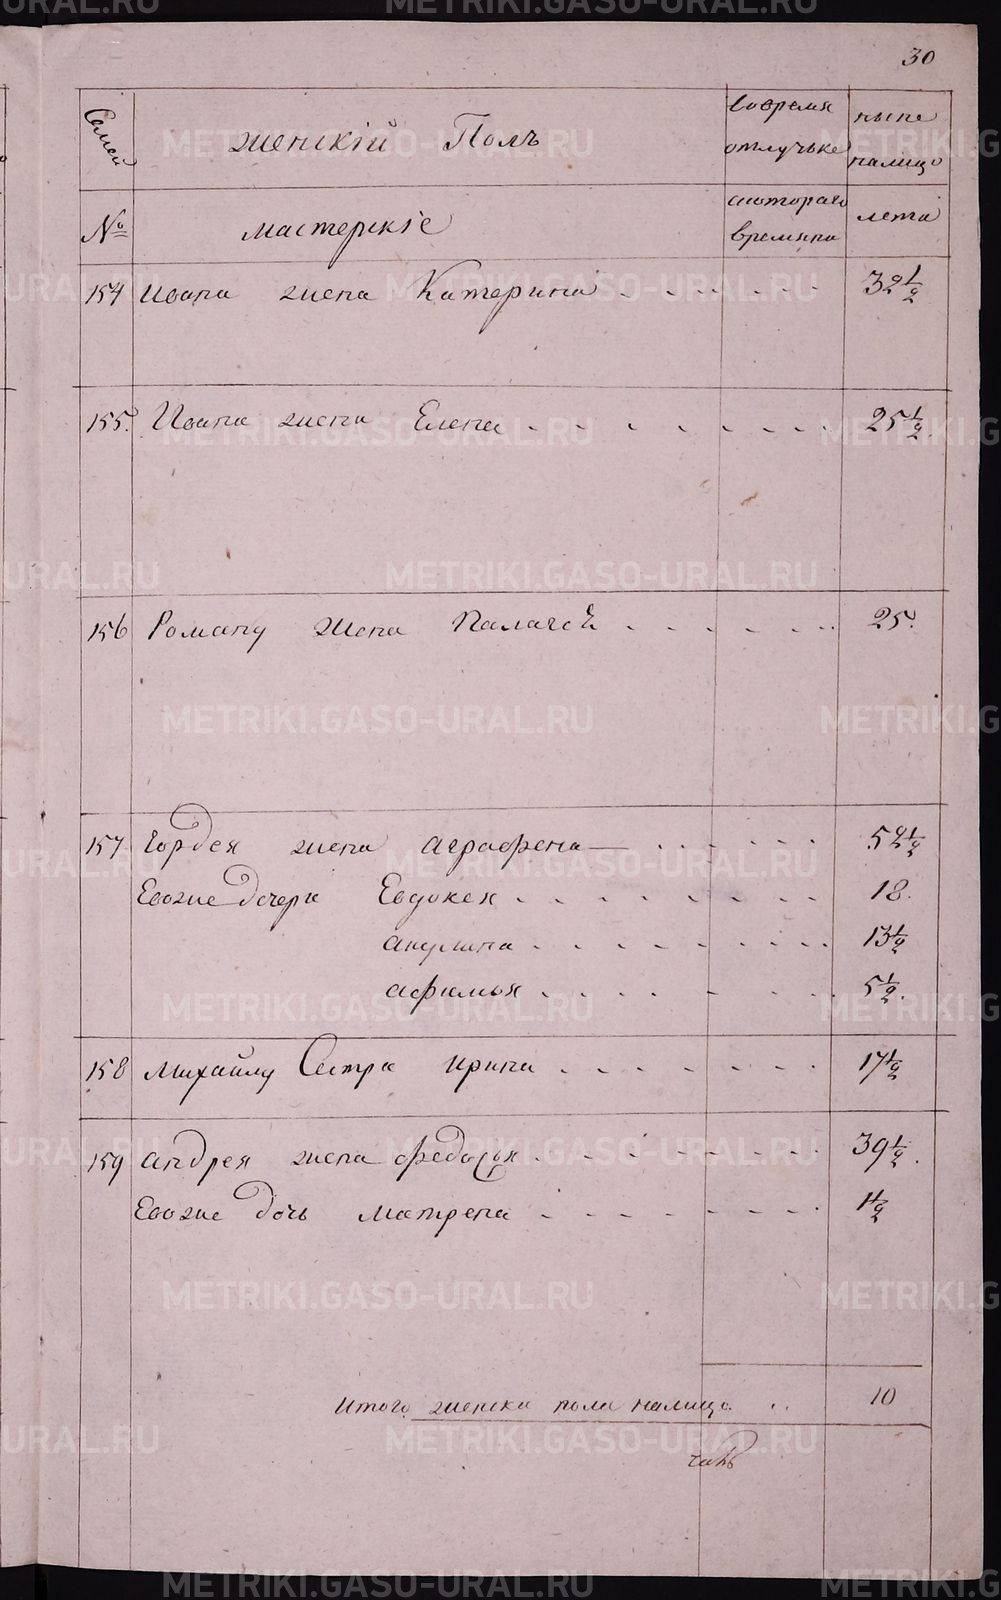 30
Семей
женскiй Полъ
вовремя
отлучьке
ныне
налицо
№
мастерскiе
скотораго
времяни
лета
154 ивана жена Катерина 32 1/2
155. Ивана жена Елена 25 1/2.
156 Роману жена Палагеѣ 25.
157 Гордея жена аграфена — 52 1/2
Евоже Дочери Евдокея 18.
акулина 13 1/2
афимья 5 1/2.
158 михайлу Сестра ирина 17 1/2
159 андрея жена федосья 39 1/2.
Евоже дочь матрена 1 1/2
итого женска пола налицо 10
METRIKI.GASO-URAL.RU